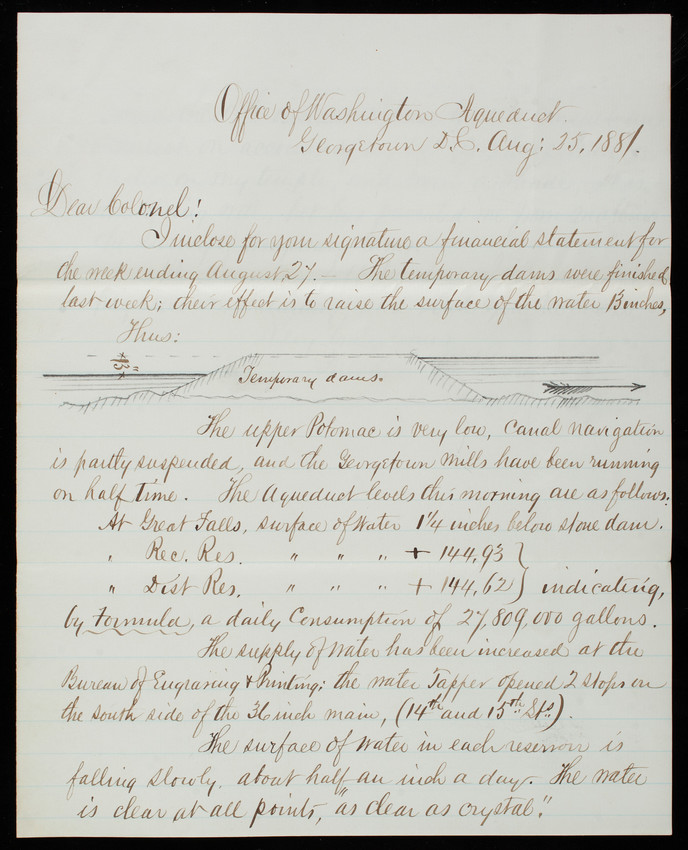 Office of Washington Aqueduct.
Georgetown D.C. Aug: 25, 1881.
Dear Colonel!
I inclose for your signature a financial statement for
the week ending August 27. — The temporary dams were finished
last week; their effect is to raise the surface of the water 13 inches,
Thus:
13"
Temporary dams.
The upper Potomac is very low, canal navigation
is partly suspended, and the Georgetown mills have been running
on half time. The Aqueduct levels this morning are as follows.
At Great Falls, surface of water 1¼ inches below stone dam.
" Rec. Res. " " " + 144,93
" Dist Res. " " " + 144,62 } indicating,
by formula, a daily consumption of 27,809,000 gallons.
The supply of water has been increased at the
Bureau of Engraving & Printing: the water Tapper opened 2 stops on
the south side of the 36 inch main, (14th and 15th Sts).
The surface of water in each reservoir is
falling slowly, about half an inch a day. The water
is clear at all points, "as clear as crystal".